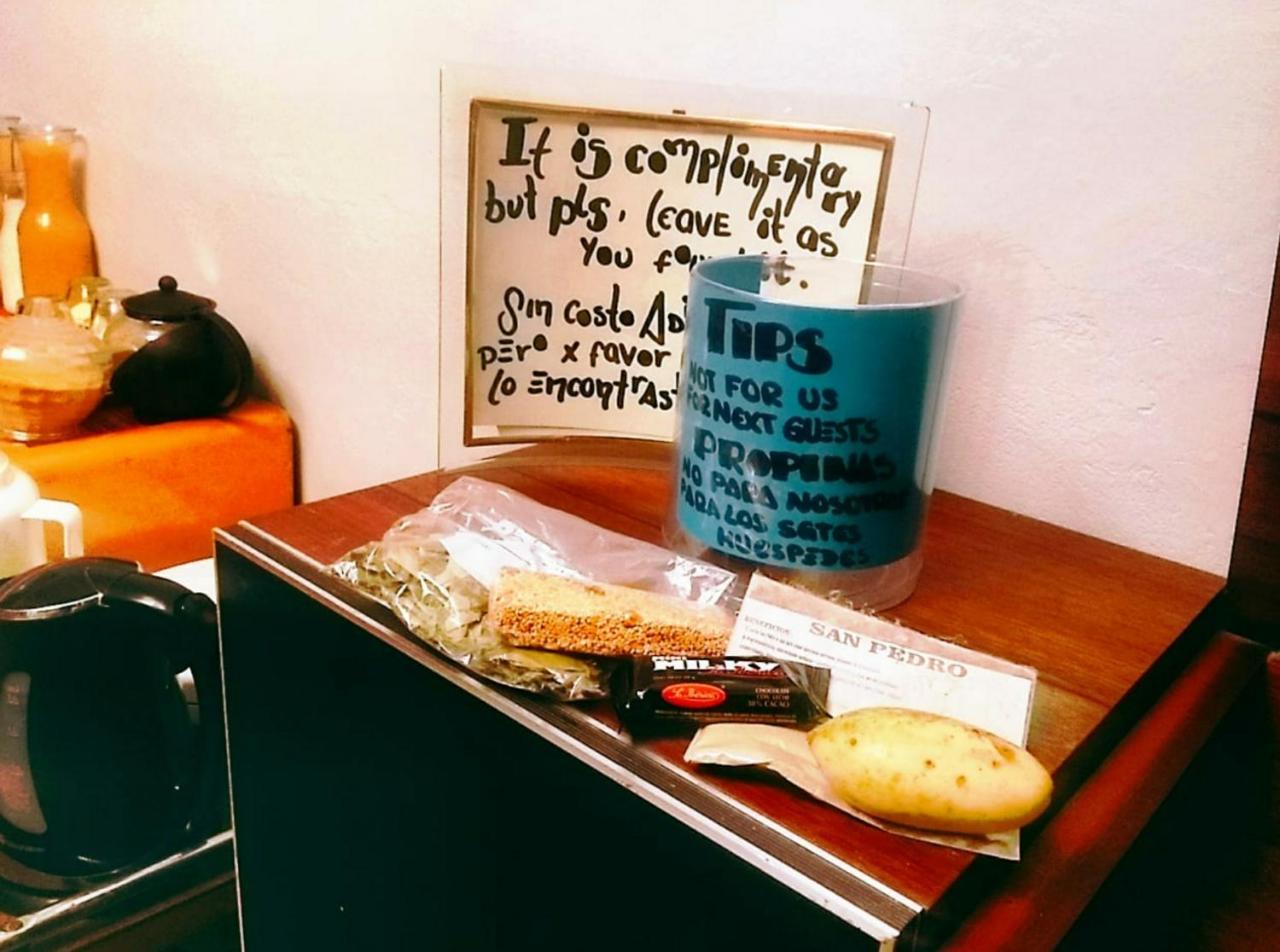 It is complimentary
but pls. leave it as
you
Sin costo
pero x favor
lo Encontrast
TIPS
NOT FOR US
FOR NEXT GUESTS
PROPINAS
NO PARA NOSOTROS
PARA LOS SGTES
HUESPEDES
BENEFICIOS:
SAN PEDRO
MILKY
La Ibérica
CHOCOLATE
CON LECHE